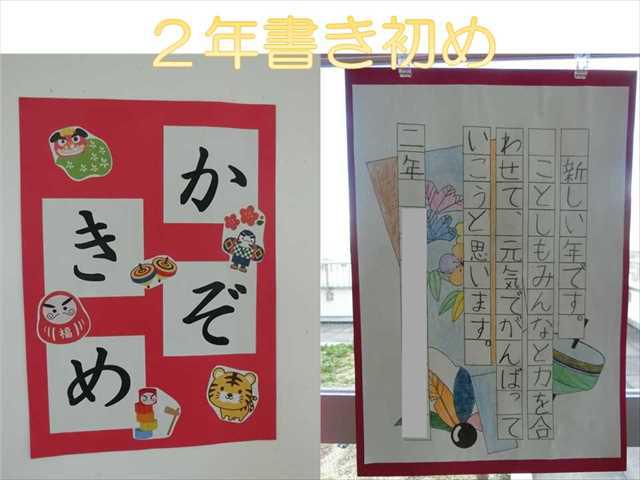 ２年書き初め
かきぞめ
福
新しい年です。
ことしもみんなと力を合
わせて、元気でがんばって
いこうと思います。
二年